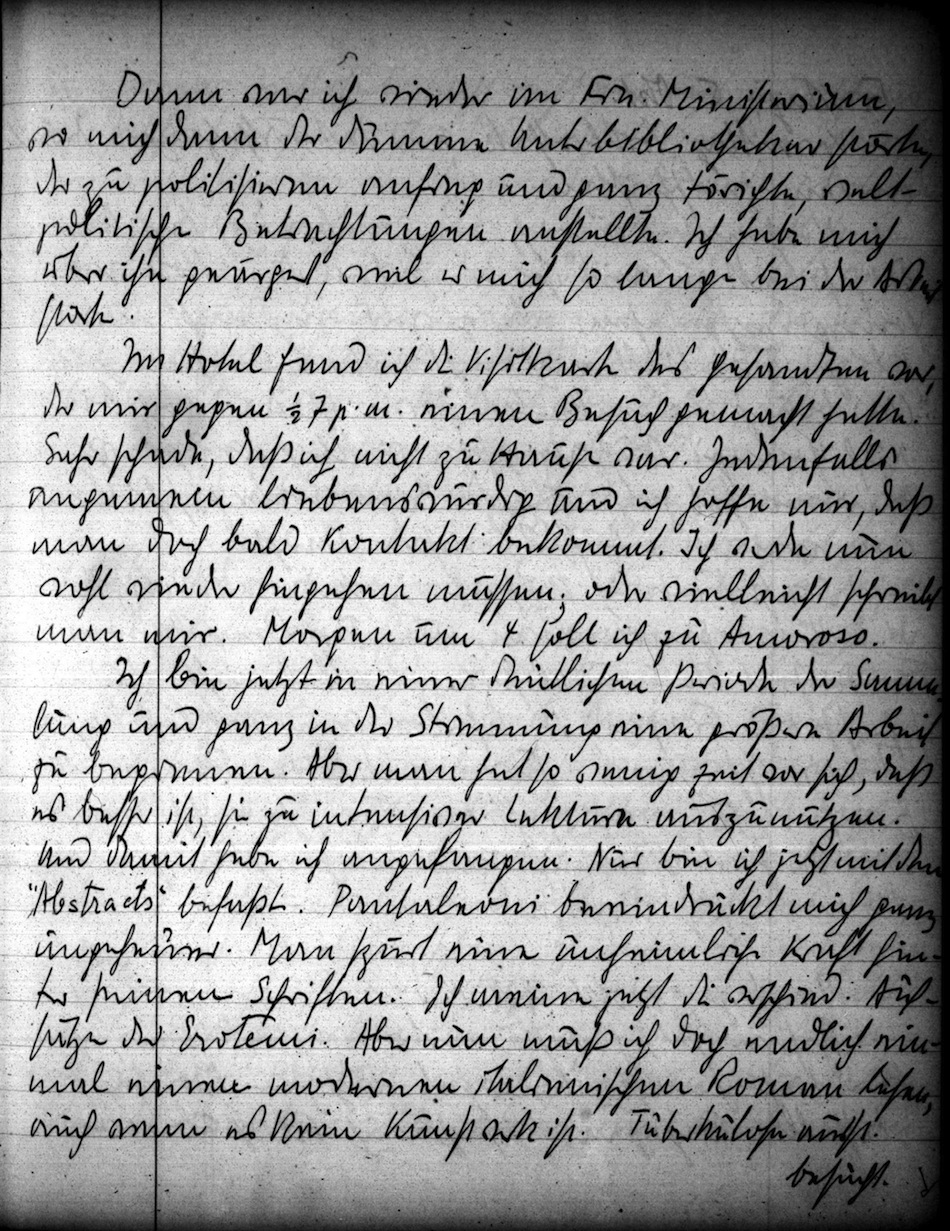 Dann war ich wieder im Fin. Ministerium,
wo mich dann der dumme Unterbibliothekar störte,
der zu politisieren anfing und ganz törichte, welt-
politische Betrachtungen anstellte. Ich habe mich
über ihn geärgert, weil er mich so lange bei der Arbeit
störte.
Im Hotel fand ich die Visitkarte des Gesandten vor,
der mir gegen ½ 7 p.m. einen Besuch gemacht hatte.
Sehr schade, daß ich nicht zu Hause war. Jedenfalls
ungemein liebenswürdig und ich hoffe nur, daß
man doch bald Kontakt bekommt. Ich werde nun
wohl wieder hingehen müssen; oder vielleicht schreibt
man mir. Morgen um 4 soll ich zu Amoroso.
Ich bin jetzt in einer deutlichen Periode der Samm-
lung und ganz in der Stimmung eine größere Arbeit
zu beginnen. Aber man hat so wenig Zeit vor sich, daß
es besser ist, sie zu intensiver Lektüre auszunützen.
Und damit habe ich angefangen. Nur bin ich jetzt mit den
"Abstracts" befaßt. Pantaleoni beeindruckt mich ganz
ungeheuer. Man spürt eine unheimliche Kraft hin-
ter seinen Schriften. Ich meine jetzt die verschied. Auf-
sätze der Erotemi. Aber nun muß ich doch endlich ein-
mal einen modernen italienischen Roman lesen,
auch wenn es kein Kunstwerk ist. Tuberkulose
besucht.